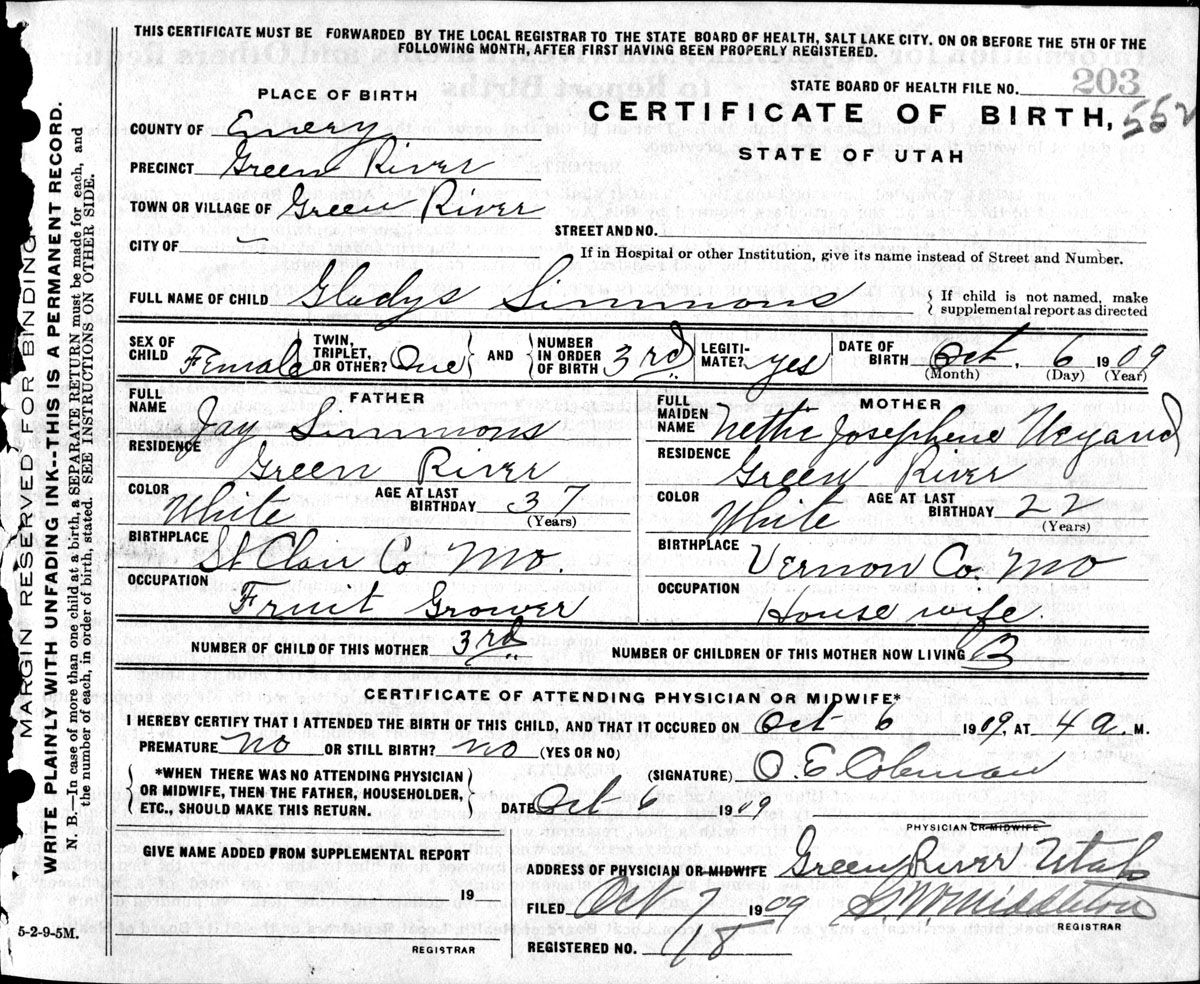 THIS CERTIFICATE MUST BE FORWARDED BY THE LOCAL REGISTRAR TO THE STATE BOARD OF HEALTH, SALT LAKE CITY, ON OR BEFORE THE 5TH OF THE
FOLLOWING MONTH, AFTER FIRST HAVING BEEN PROPERLY REGISTERED.
STATE BOARD OF HEALTH FILE NO. 203
PLACE OF BIRTH
CERTIFICATE OF BIRTH, 552
STATE OF UTAH
COUNTY OF Emery
PRECINCT Green River
TOWN OR VILLAGE OF Green River
STREET AND NO.
CITY OF
If in Hospital or other Institution, give its name instead of Street and Number.
FULL NAME OF CHILD Gladys Simmons
If child is not named, make
supplemental report as directed
SEX OF CHILD Female TWIN, TRIPLET, OR OTHER? One AND NUMBER IN ORDER OF BIRTH 3rd LEGITI-MATE? yes DATE OF BIRTH Oct, 6 1909
(Month) (Day) (Year)
FATHER
FULL NAME Jay Simmons
RESIDENCE Green River
COLOR White AGE AT LAST BIRTHDAY 37
(Years)
BIRTHPLACE St Clair Co Mo.
OCCUPATION Fruit Grower
MOTHER
FULL MAIDEN NAME Nettie Josephene
RESIDENCE Green River
COLOR White AGE AT LAST BIRTHDAY 22
(Years)
BIRTHPLACE Vernon Co. Mo
OCCUPATION House wife.
NUMBER OF CHILD OF THIS MOTHER 3rd NUMBER OF CHILDREN OF THIS MOTHER NOW LIVING 3
CERTIFICATE OF ATTENDING PHYSICIAN OR MIDWIFE*
I HEREBY CERTIFY THAT I ATTENDED THE BIRTH OF THIS CHILD, AND THAT IT OCCURED ON Oct 6 1909, AT 4 a. M.
PREMATURE no OR STILL BIRTH? no (YES OR NO)
*WHEN THERE WAS NO ATTENDING PHYSICIAN
OR MIDWIFE, THEN THE FATHER, HOUSEHOLDER,
ETC., SHOULD MAKE THIS RETURN.
(SIGNATURE) O. E Coleman
DATE Oct 6 1909
PHYSICIAN OR MIDWIFE
GIVE NAME ADDED FROM SUPPLEMENTAL REPORT
19
REGISTRAR
ADDRESS OF PHYSICIAN OR MIDWIFE Green River Utah
FILED Oct 7 1909 Middleton
REGISTRAR
REGISTERED NO. 18
MARGIN RESERVED FOR BINDING
WRITE PLAINLY WITH UNFADING INK--THIS IS A PERMANENT RECORD.
N. B.—In case of more than one child at a birth, a SEPARATE RETURN must be made for each, and
the number of each, in order of birth, stated. SEE INSTRUCTIONS ON OTHER SIDE.
5-2-9-5M.